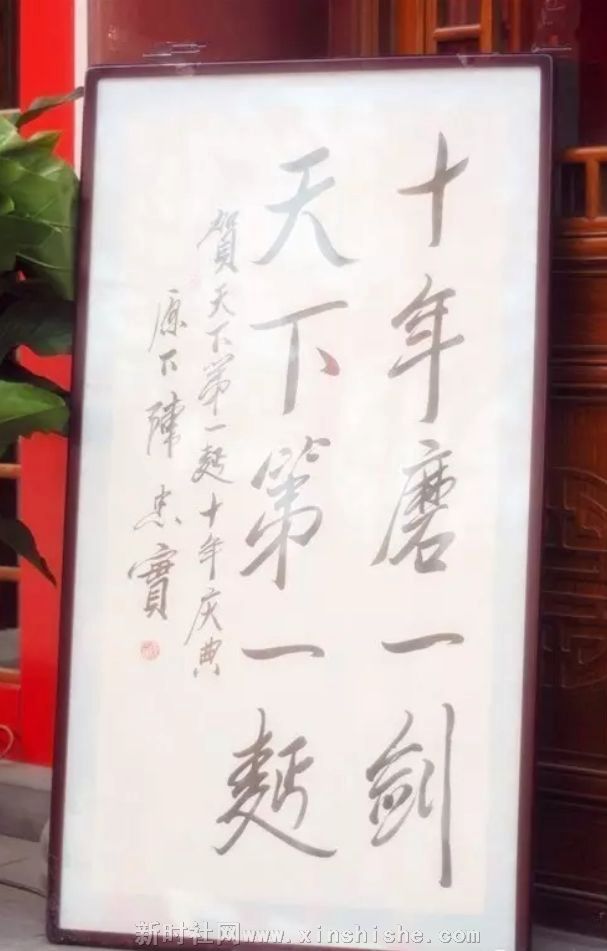 十年磨一剑
天下第一麵
賀天下第一麵十年庆典
原下陳忠實
新时社网www.xinshishe.com